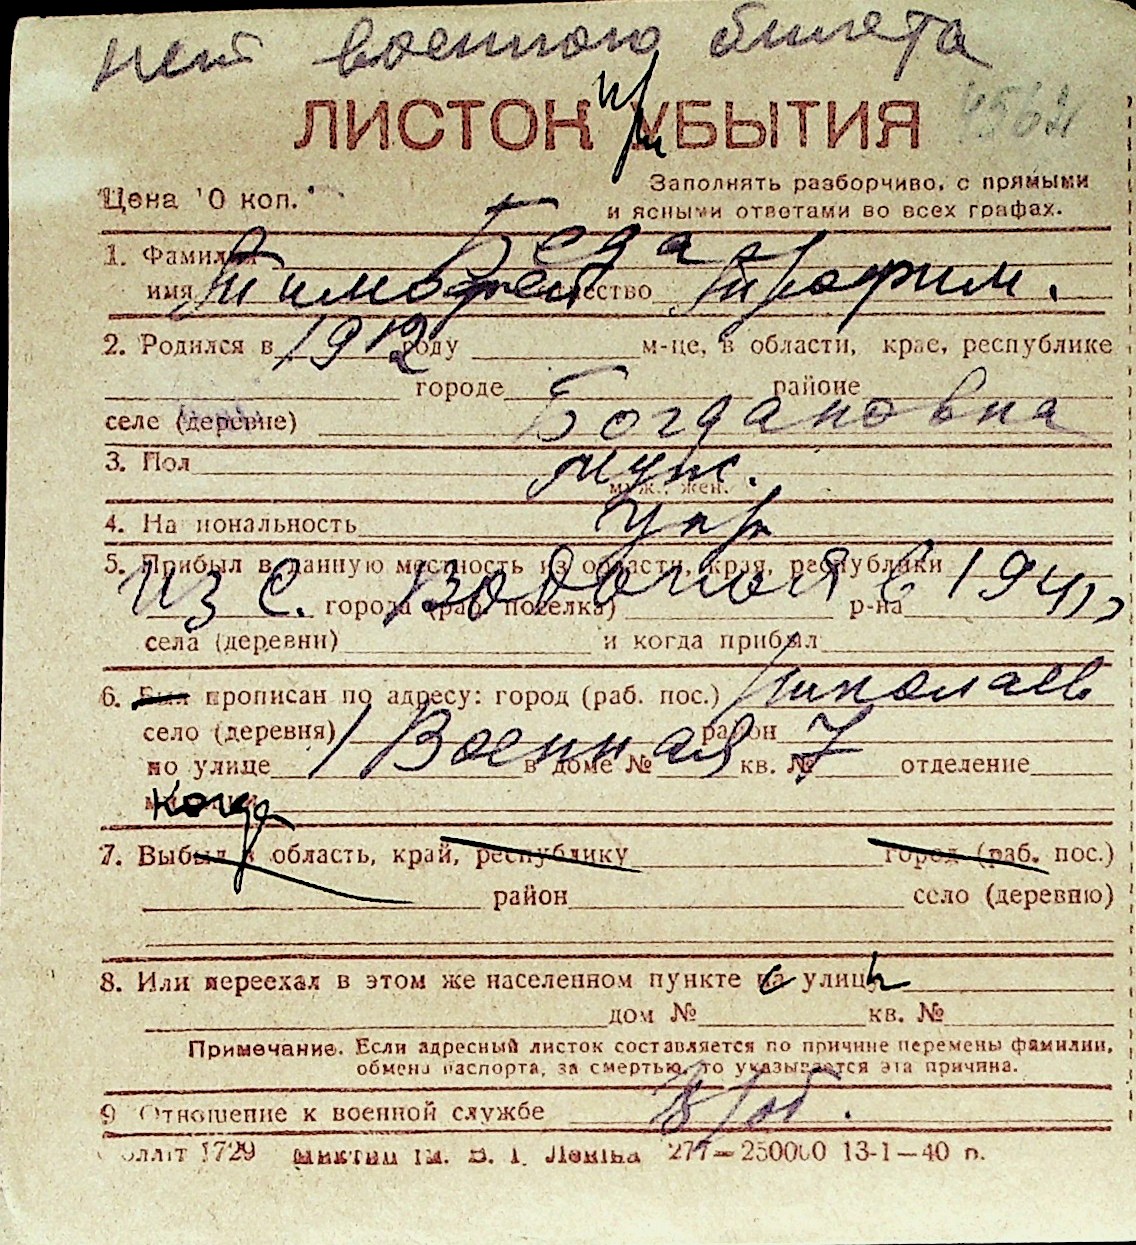 нет военного билета
ЛИСТОК УБЫТИЯ
Цена 10 коп.
Заполнять разборчиво, с прямыми
и ясными ответами во всех графах.
1. Фамилия Беда
имя Тимофей отчество Трофим.
2. Родился в 1912 году м-це, в области, крае, республике
городе районе
селе (деревне) Богдановна
3. Пол муж.
муж., жен.
4. Национальность укр
5. Прибыл в данную местность из области, края, республики
из с. Водопоя в 1941 г
города (раб. поселка) р-на
села (деревни) и когда прибыл
6. Был прописан по адресу: город (раб. пос.) Николаев
село (деревня) район
по улице 1 Военная в доме № 7 кв. № отделение
милиции когда
7. Выбыл в область, край, республику город (раб. пос.)
район село (деревню)
8. Или переехал в этом же населенном пункте на улицу
дом № кв. №
Примечание. Если адресный листок составляется по причине перемены фамилии,
обмена паспорта, за смертью, то указывается эта причина.
9 Отношение к военной службе в/об.
1729 ім. В. І. Леніна 277—250000 13-1—40 р.